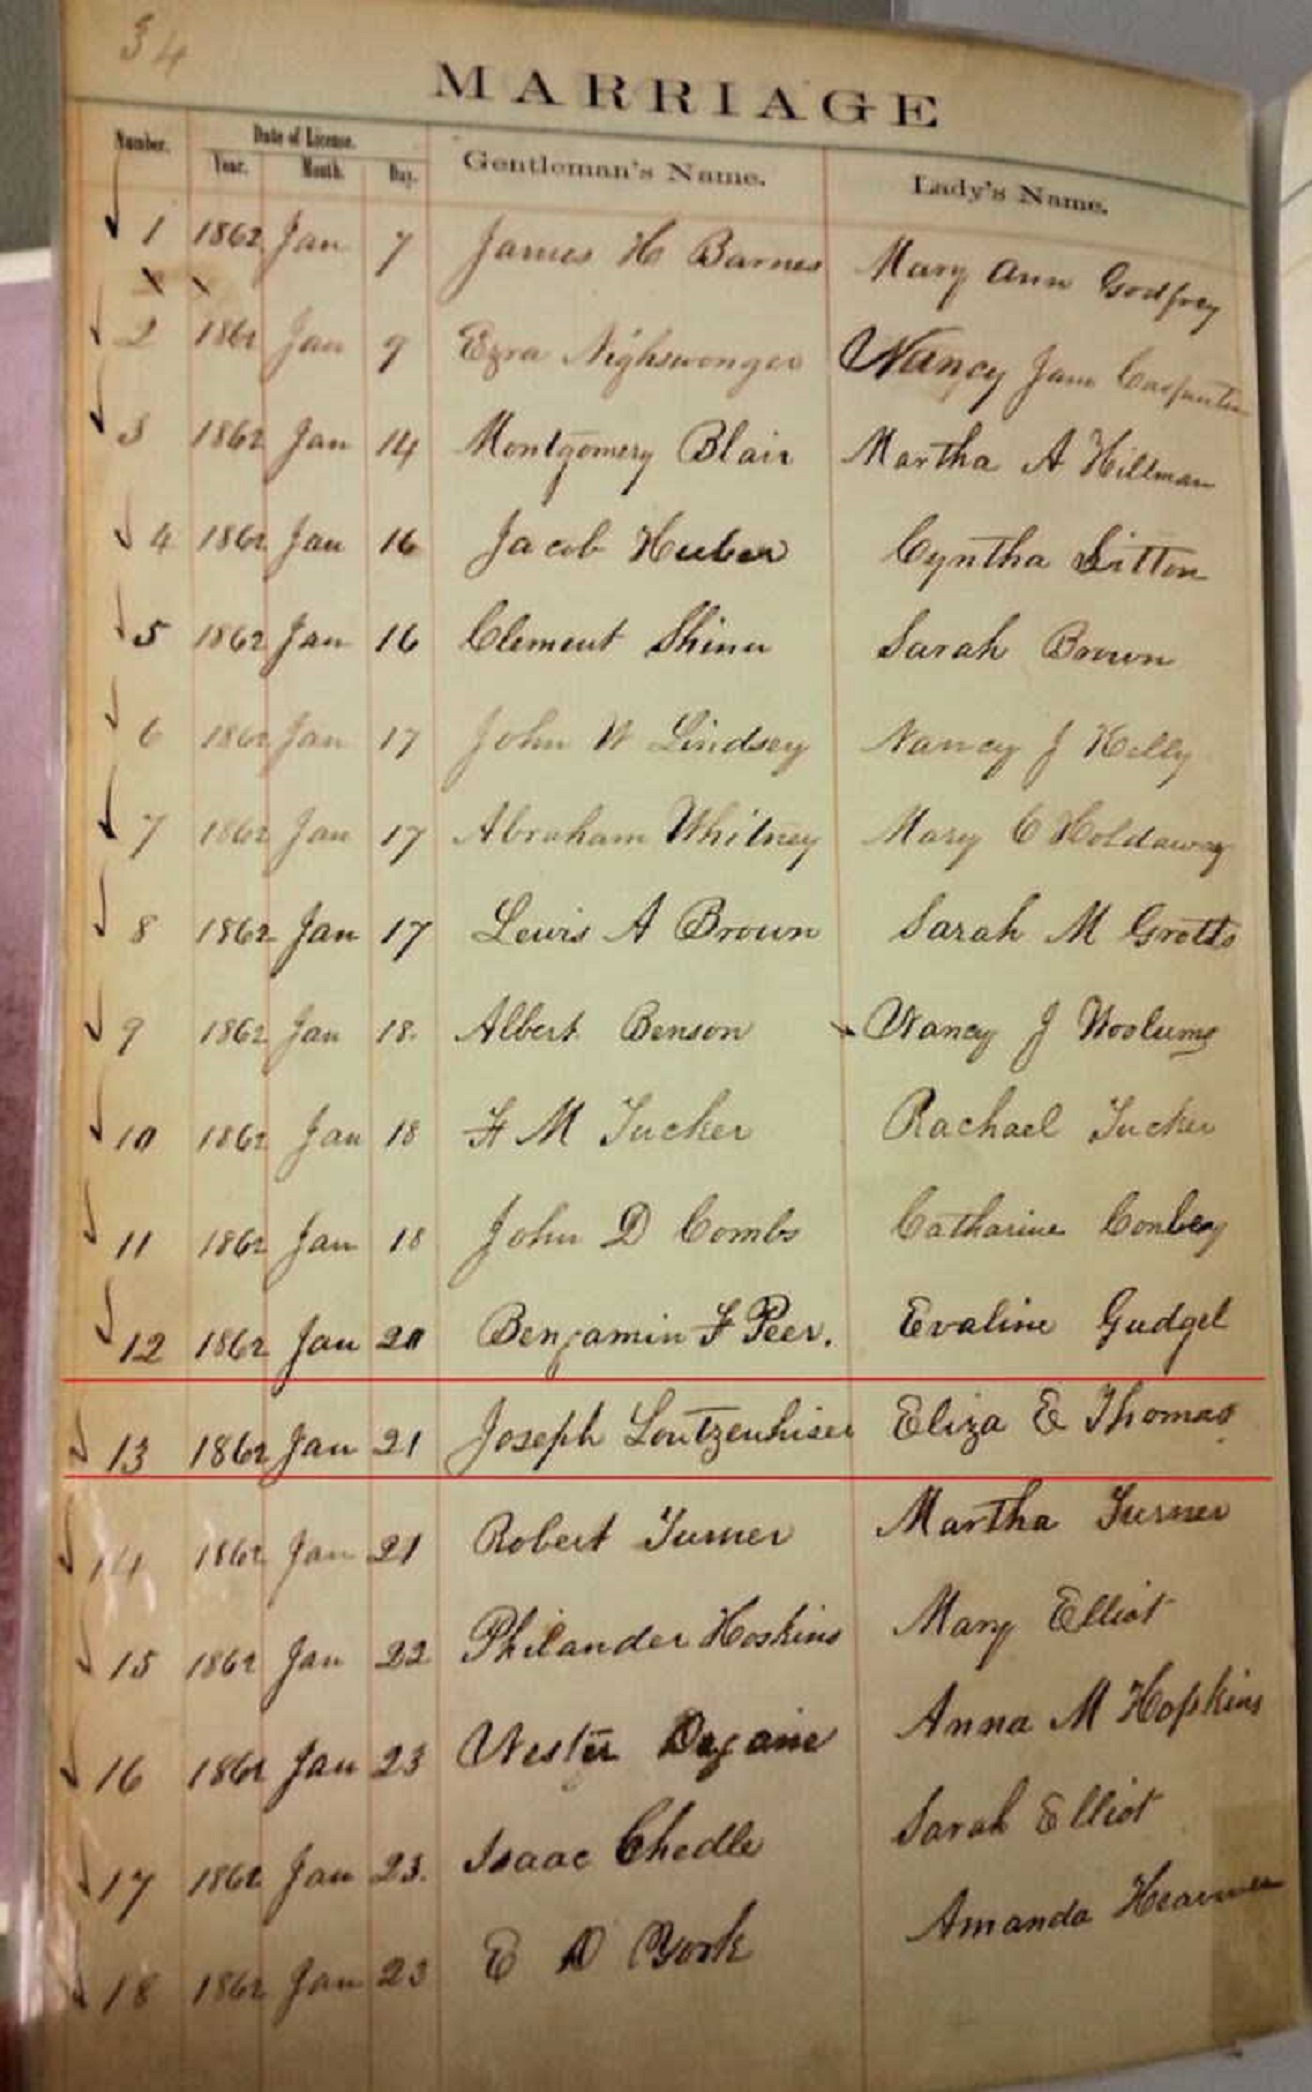 34
MARRIAGE
Number. Date of License. Gentleman's Name. Lady's Name.
Year. Month. Day.
1 1862 Jan 7 James H Barnes Mary Ann Godfrey
2 1862 Jan 9 Ezra Nighswonger Nancy Jane Carpenter
3 1862 Jan 14 Montgomery Blair Martha A Hillman
4 1862 Jan 16 Jacob Huber Cyntha Sitton
5 1862 Jan 16 Clement Shinn Sarah Brown
6 1862 Jan 17 John W Lindsey Nancy J Kelly
7 1862 Jan 17 Abraham Whitney Mary C Holdaway
8 1862 Jan 17 Lewis A Brown Sarah M Grotts
9 1862 Jan 18. Albert Benson Nancy J Woolums
10 1862 Jan 18 F M Tucker Rachael Tucker
11 1862 Jan 18 John D Combs Catharine
12 1862 Jan 20 Benjamin F Peer. Evaline Gudgel
13 1862 Jan 21 Joseph Loutzenhiser Eliza E Thomas
14 1862 Jan 21 Robert Turner Martha Turner
15 1862 Jan 22 Philander Hoskins Mary Elliot
16 1862 Jan 23 Anna M Hopkins
17 1862 Jan 23. Isaac Chedle Sarah Elliot
18 1862 Jan 23 E D York Amanda